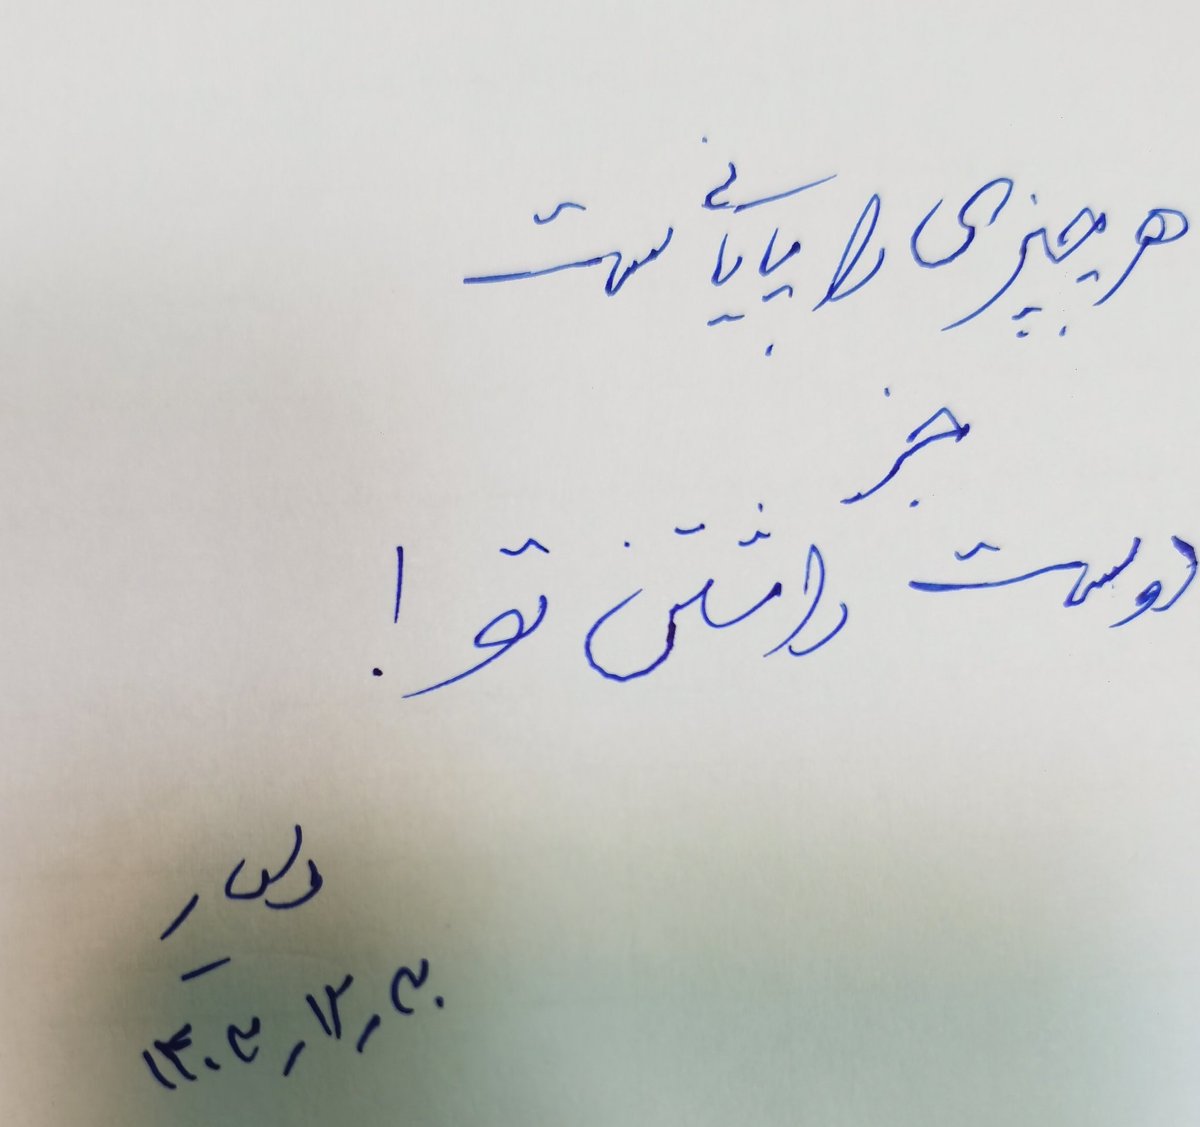 هر چیزی را پایانی ست
جز
دوست داشتن تو !
۱۴۰۳٫۱۲٫۳۰